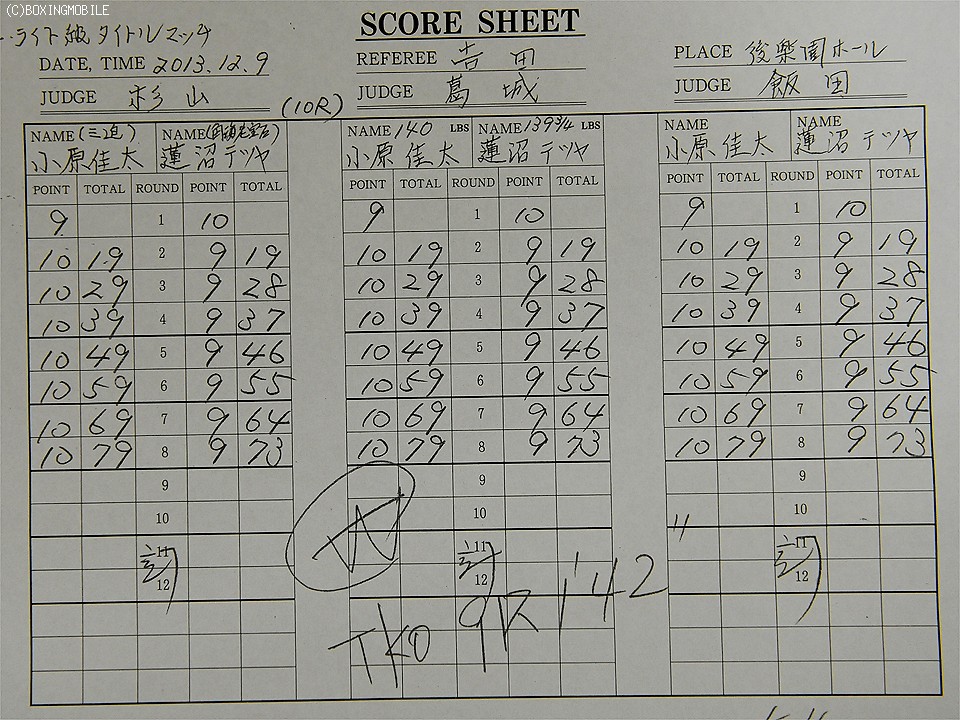 (C)BOXINGMOBILE
SCORE SHEET
ライト級タイトルマッチ
DATE, TIME 2013.12.9 REFEREE 吉田 PLACE 後楽園ホール
JUDGE 杉山 (10R) JUDGE 葛城 JUDGE 飯田
NAME (三迫) NAME NAME 140 LBS NAME 139 3/4 LBS NAME NAME
小原佳太 蓮沼テツヤ 小原佳太 蓮沼テツヤ 小原佳太 蓮沼テツヤ
POINT TOTAL ROUND POINT TOTAL POINT TOTAL ROUND POINT TOTAL POINT TOTAL ROUND POINT TOTAL
9 1 10 9 1 10 9 1 10
10 19 2 9 19 10 19 2 9 19 10 19 2 9 19
10 29 3 9 28 10 29 3 9 28 10 29 3 9 28
10 39 4 9 37 10 39 4 9 37 10 39 4 9 37
10 49 5 9 46 10 49 5 9 46 10 49 5 9 46
10 59 6 9 55 10 59 6 9 55 10 59 6 9 55
10 69 7 9 64 10 69 7 9 64 10 69 7 9 64
10 79 8 9 73 10 79 8 9 73 10 79 8 9 73
9 9 9
10 W 10 10
11 11 11
12 12 12
TKO 9R 1'42"